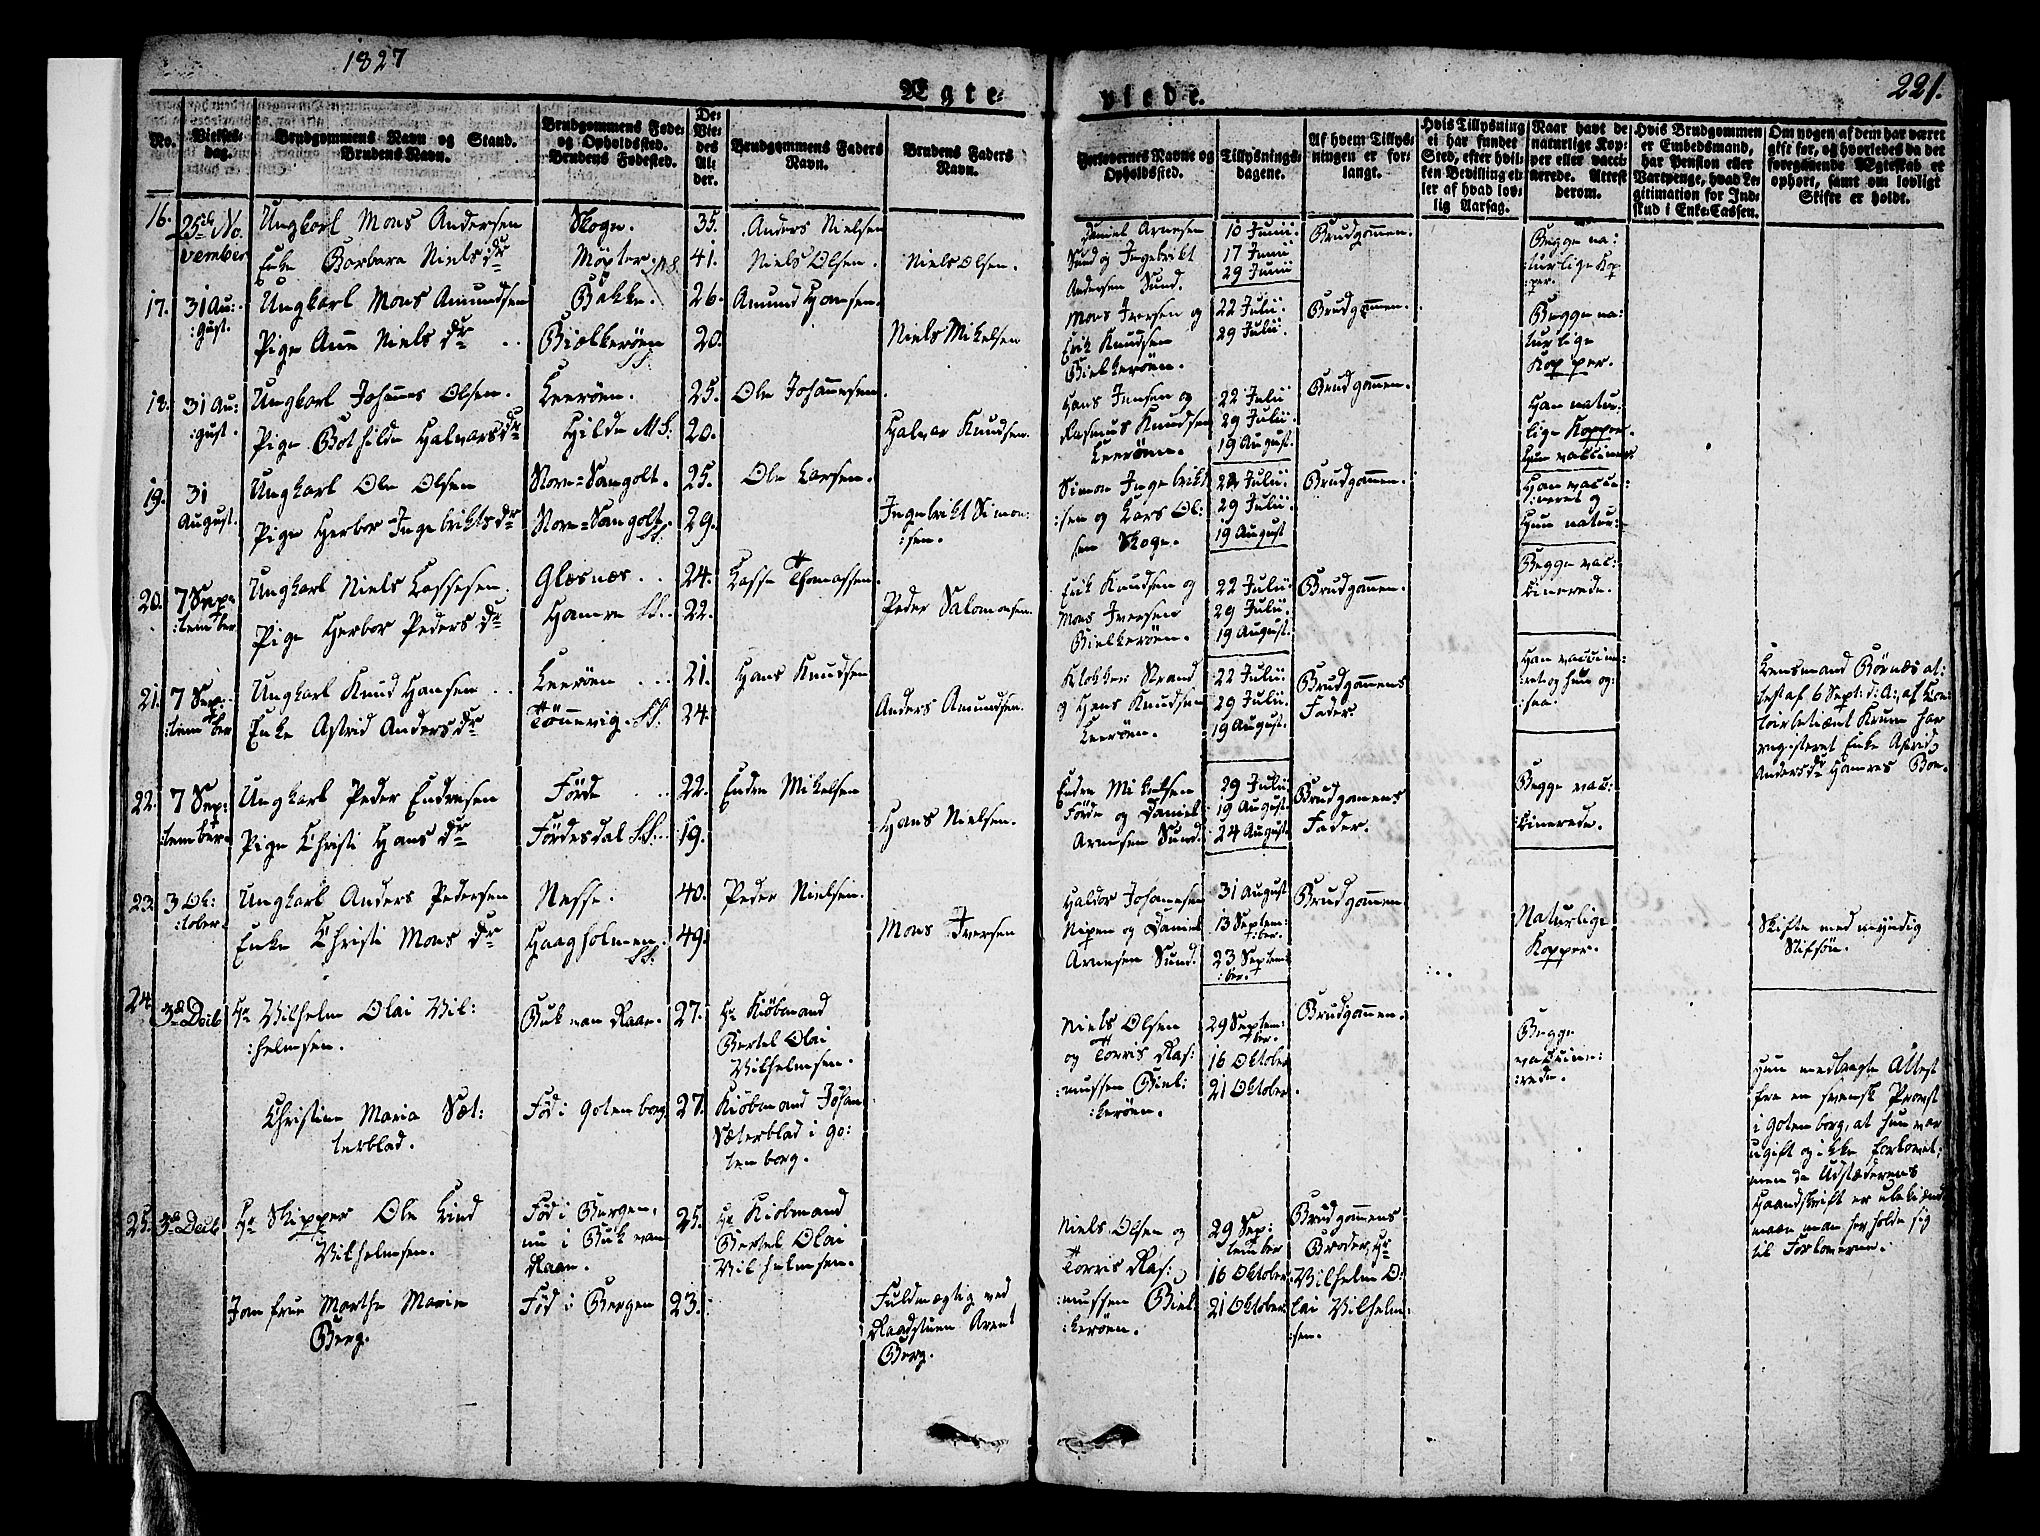 1827
Ægte-
viede.
221.
No.
Vielses-
dag.
Brudgommens Navn og Stand.
Brudens Navn.
Brudgommens Føde-
og Opholdssted.
Brudens Fødested.
De
Vie-
des
Al-
der.
Brudgommens Faders
Navn.
Brudens Faders
Navn.
Forlovernes Navne og
Opholdssted.
Tillysnings-
dagene.
Af hvem Tillys-
ningen er for-
langt.
Hvis Tillysning
ei har fundet
Sted, efter hvil-
ken Bevilling el-
ler af hvad lov-
lig Aarsag.
Naar havt de
naturlige Kop-
per eller vacci-
nerede. Attest
derom.
Hvis Brudgommen
er Embedsmand,
har Pension eller
Vartpenge, hvad Le-
gitimation for Ind-
skud i Enke-Cassen.
Om nogen af dem har været
gift før, og hvorledes da det
foregaaende Ægteskab er
ophørt, samt om lovligt
Skifte er holdt.
16.
25de No-
vember
Ungkarl Mons Andersen
Enke Barbara Nielsdr
Skoge.
Møster
35.
41.
Anders Nielsen
Niels Olsen.
Niels Olsen.
Daniel Arnesen
Sund og Ingebrikt
Andersen Sund.
10 Junii.
17 Junii
29 Junii
Brudgommen.
Begge na:
:turlige Kop
:per.
17.
31 Au:
:gust.
Ungkarl Mons Amundsen
Pige Anne Niels dr
Bakke.
Bielkerøen
26.
20.
Amund Hansen.
Niels Mikelsen
Mons Iversen og
Erik Knudsen
Bielkerøen.
22 Julii.
29 Julii.
Brudgommen.
Begge na:
turlige
Kopper.
18.
31 Au:
:gust.
Ungkarl Johannes Olsen.
Pige Bothilde Halvorsdr
Leerøen.
Hilde MS:
25.
20.
Ole Johannesen
Halvor Knudsen.
Hans Jensen og
Rasmus Knudsen
Leerøen.
22 Julii
29 Julii.
19 August.
Brudgommen.
Han natur:
lige Kopper.
Hun vaccineret
19.
31
August.
Ungkarl Ole Olsen
Pige Herbor Ingebriktsdr
Norr=Sangolt.
Norr=Sangolt.
25.
29.
Ole Larsen.
Ingebrikt Simon:
:sen.
Simon Ingebrikt
:sen og Lars Ol:
sen Skoge.
22 Julii.
29 Julii.
19 August
Brudgommen.
Han vacci:
neret og
Hun natur:
20.
7 Sep:
:tember
Ungkarl Niels Lassesen.
Pige Herbor Peders dr
Glæsnæs
Hamre SS.
24.
22.
Lasse Thomassen.
Peder Salomonsen.
Erik Knudsen og
Mons Iversen
Bielkerøen.
22 Julii.
29 Julii.
19 August.
Brudgommen.
Begge vac:
cinerede.
21.
7 Sep:
:tember
Ungkarl Knud Hansen
Enke Astrid Anders dr
Leerøen
Tønnevig. SS.
21.
24.
Hans Knudsen
Anders Amundsen.
Klokker Strand
og Jens Knudsen
Leerøen.
22 Julii.
29 Julii.
19 August.
Brudgommens
Fader.
Han vaccine:
:ret og hun og:
:saa.
Lensmand Børnæs at:
test af 6 Sept: d: A:, af Kon:
toirbetient Krum har
registeret Enke Astrid
Andersdr Hamres Boe.
22.
7 Sep:
:tember.
Ungkarl Peder Endresen
Pige Christi Hans dr
Førde
Førdesdal SS.
22.
19.
Endre Mikelsen
Hans Nielsen.
Endre Mikelsen
Førde og Daniel
Arnesen Sund.
29 Julii.
19 August.
24 August.
Brudgommens
Fader.
Begge vac:
cinerede.
23.
3 Ok:
:tober.
Ungkarl Anders Pedersen
Enke Christi Mons dr
Nesse.
Haagholmen.
40.
49.
Peder Nielsen.
Mons Iversen
Haldor Johannesen
Nipen og Daniel
Arnesen Sund.
31 August
13 Septem:
:ber.
23 Septem
:ber.
Brudgommen
Naturlige
Kopper.
Skifte med myndig
Stifsøn.
24.
3de Decb
Hr Vilhelm Olai Vil:
:helmsen.
Buk van Raae.
27.
Hr Kiøbmand
Bertel Olai
Vilhelmsen.
Christine Maria Sæt:
terblad.
Fød i Gotenborg.
27.
Kiøbmand Johan
Sæterblad i Go:
tenborg.
Niels Olsen
og Torris Ras:
:mussen Biel:
:kerøen.
29 Septem:
:ber.
16 Oktober
21 Oktober.
Brudgommen.
Begge
vaccine:
:rede.
Hun medbragte Attest
fra en svensk Provst
i Gotenborg, at hun var
ugift og ikke forlovet:
men da Udstæderens
Haandskrift er ubekiendt
maae man her holde sig
til Forloverne.
25.
3de Decb
Hr Skipper Ole Lind
Vilhelmsen.
Fød i Bergen,
nu i Buk van
Raae.
25.
Hr Kiøbmand
Bertel Olai
Vilhelmsen.
Jomfrue Marthe Marie
Berg.
Fød i Bergen
23.
Fuldmægtig ved
Raadstuen Arent
Berg.
Niels Olsen og
Torris Ras:
:mussen Biel:
:kerøen.
29 Sep:
tember
16 Oktober.
21 Oktober.
Brudgommens
Broder, Hr
Vilhelm O:
lai Vilhelm:
:sen.